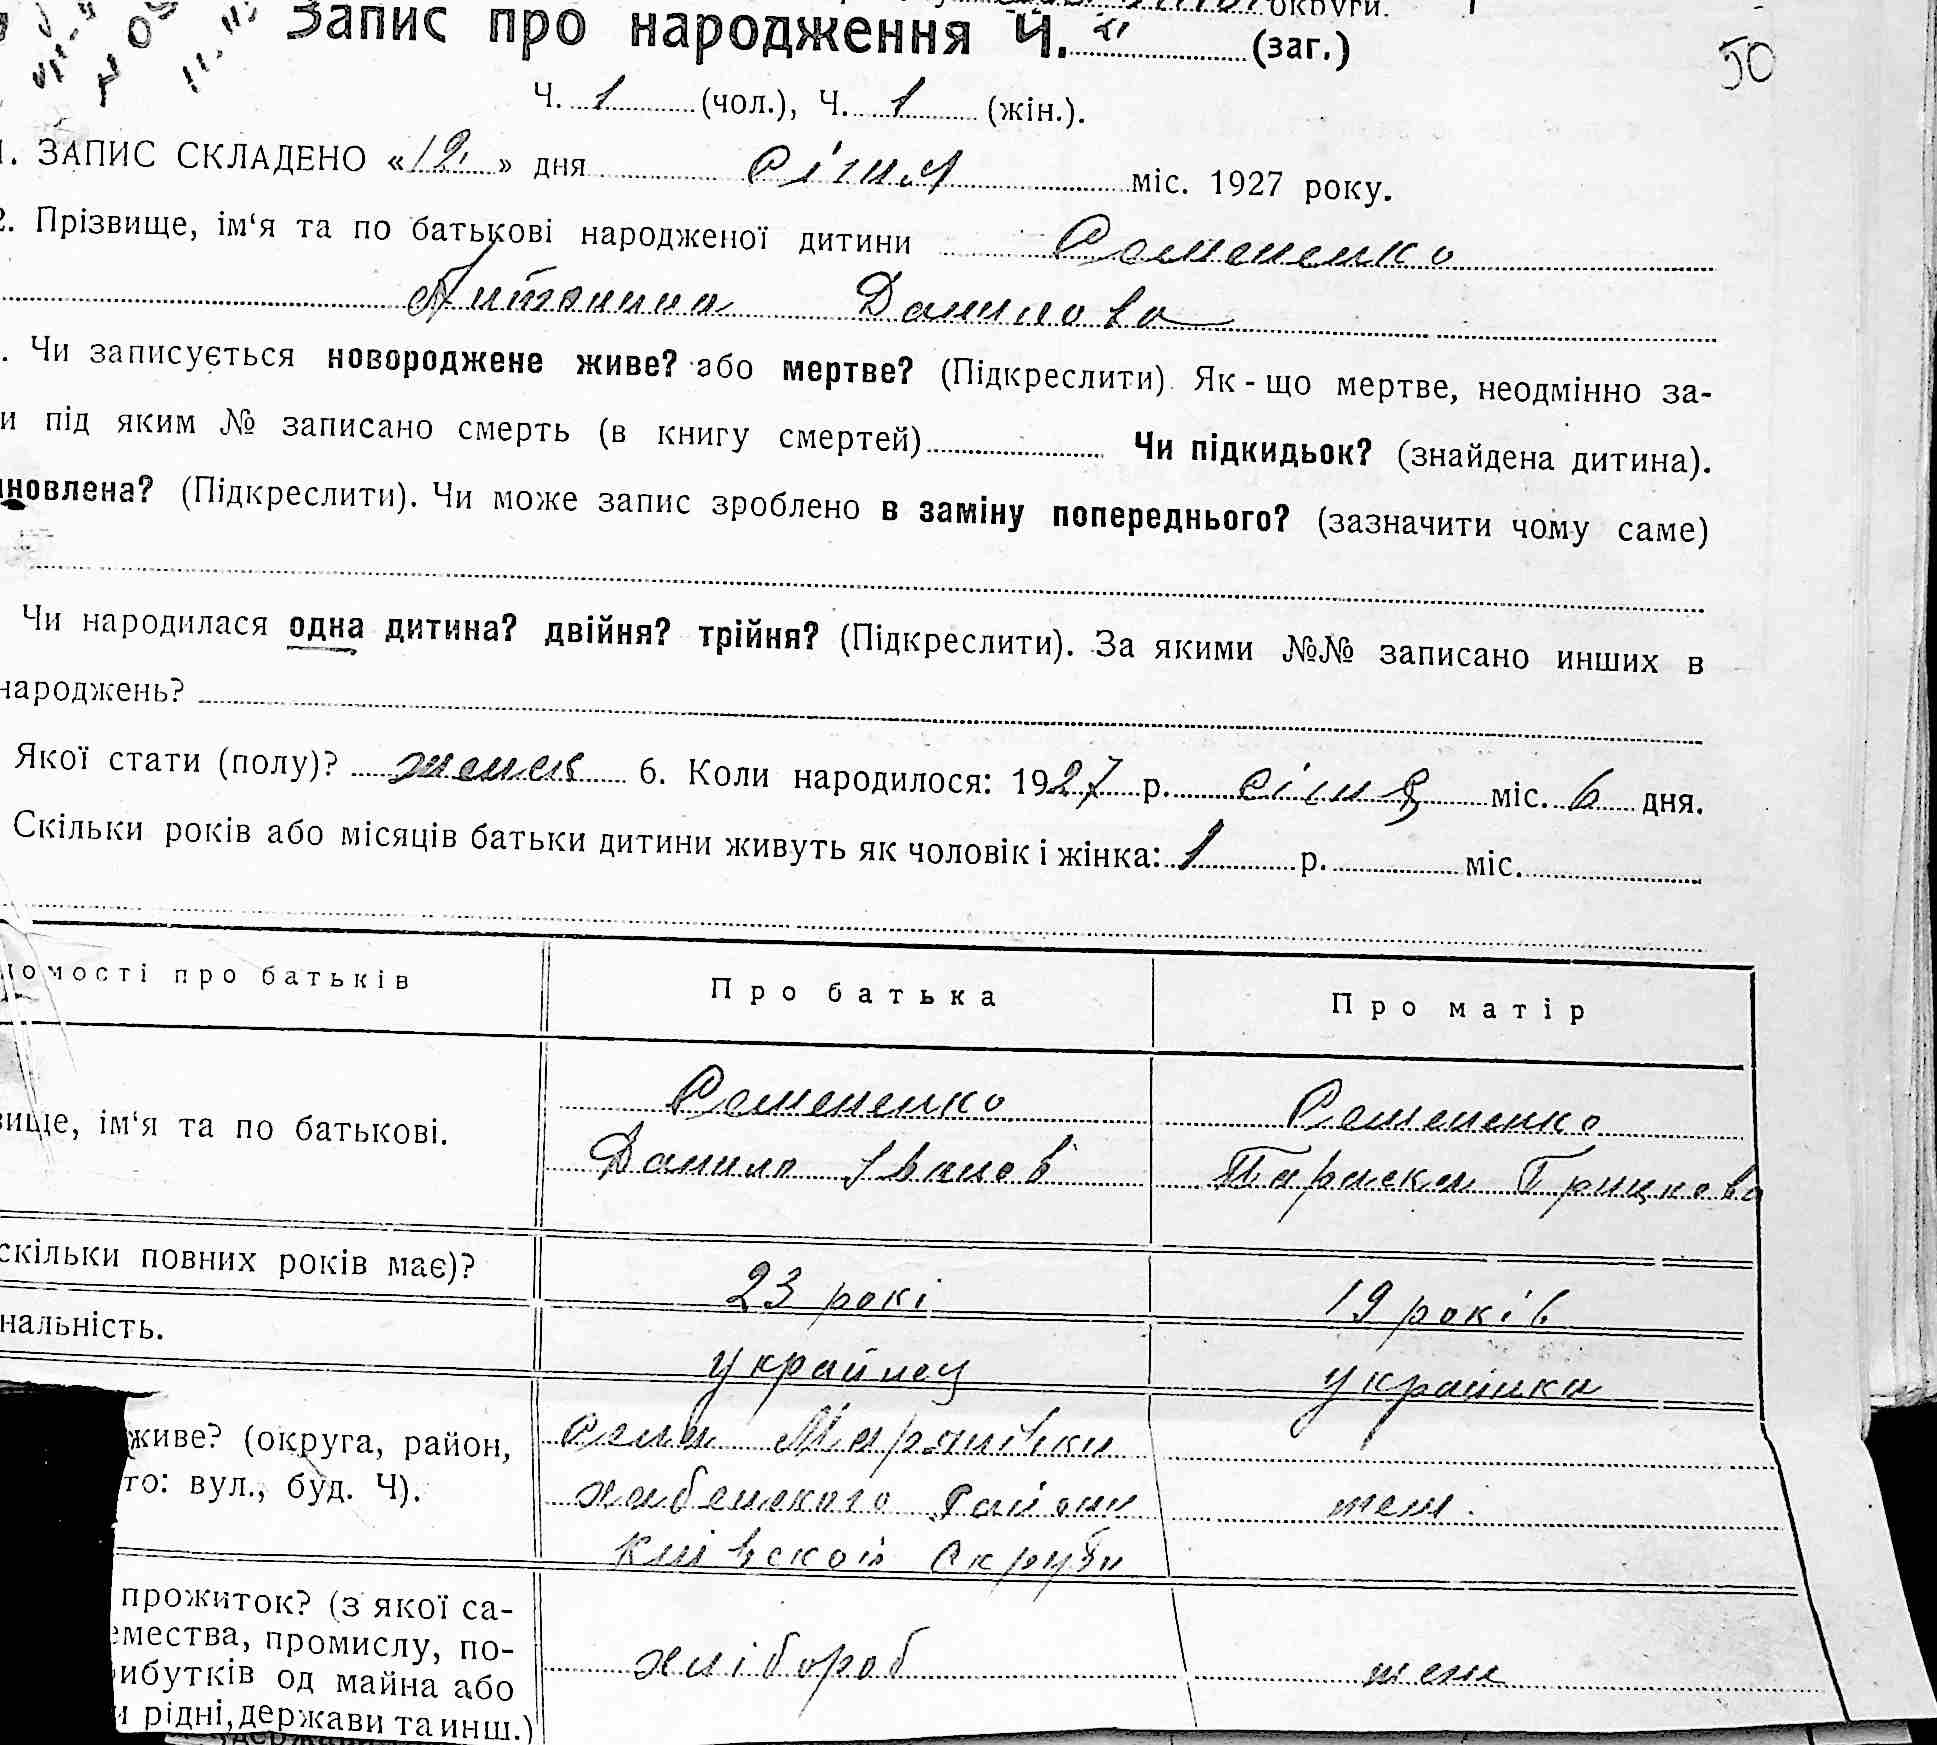 округи.
Запис про народження Ч. (заг.)
50
Ч. 1 (чол.), Ч. 1 (жін.).
1. ЗАПИС СКЛАДЕНО «12» дня січня міс. 1927 року.
2. Прізвище, ім‘я та по батькові народженої дитини Семененко
Антонина Данилова
. Чи записується новороджене живе? або мертве? (Підкреслити). Як-що мертве, неодмінно за-
и під яким № записано смерть (в книгу смертей) Чи підкидьок? (знайдена дитина).
новлена? (Підкреслити). Чи може запис зроблено в заміну попереднього? (зазначити чому саме)
Чи народилася одна дитина? двійня? трійня? (Підкреслити). За якими №№ записано инших в
народжень?
Якої стати (полу)? женск 6. Коли народилося: 1927 р. січня міс. 6 дня.
Скільки років або місяців батьки дитини живуть як чоловік і жінка: 1 р. міс.
домості про батьків Про батька Про матір
Семененко Семененко
вище, ім‘я та по батькові. Данило Іванов Параска Грицкова
скільки повних років має)? 23 рокі 19 років
нальність. украйнец украинка
живе? (округа, район, села Марянівки
то: вул., буд. Ч). хабенского району теж.
Київской Округи
прожиток? (з якої са-
емества, промислу, по- хлібороб теж
ибутків од майна або
и рідні, держави та инш.)